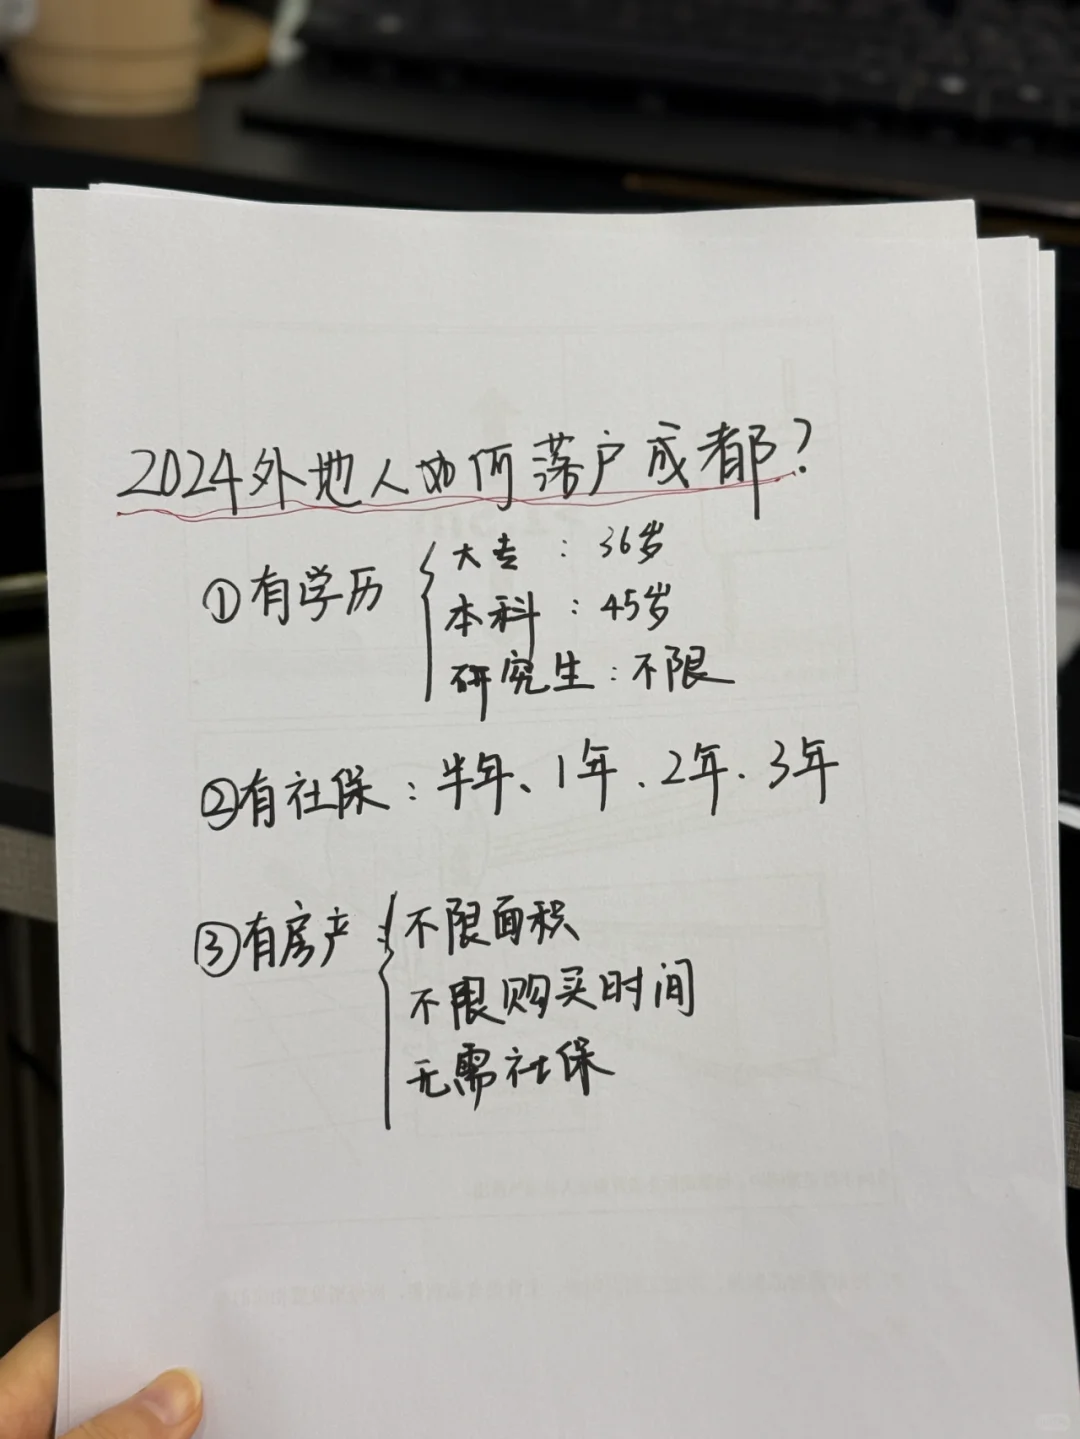 2024外地人如何落户成都？
①有学历
大专：36岁
本科：45岁
研究生：不限
②有社保：半年、1年、2年、3年
③有房产：
不限面积
不限购买时间
无需社保